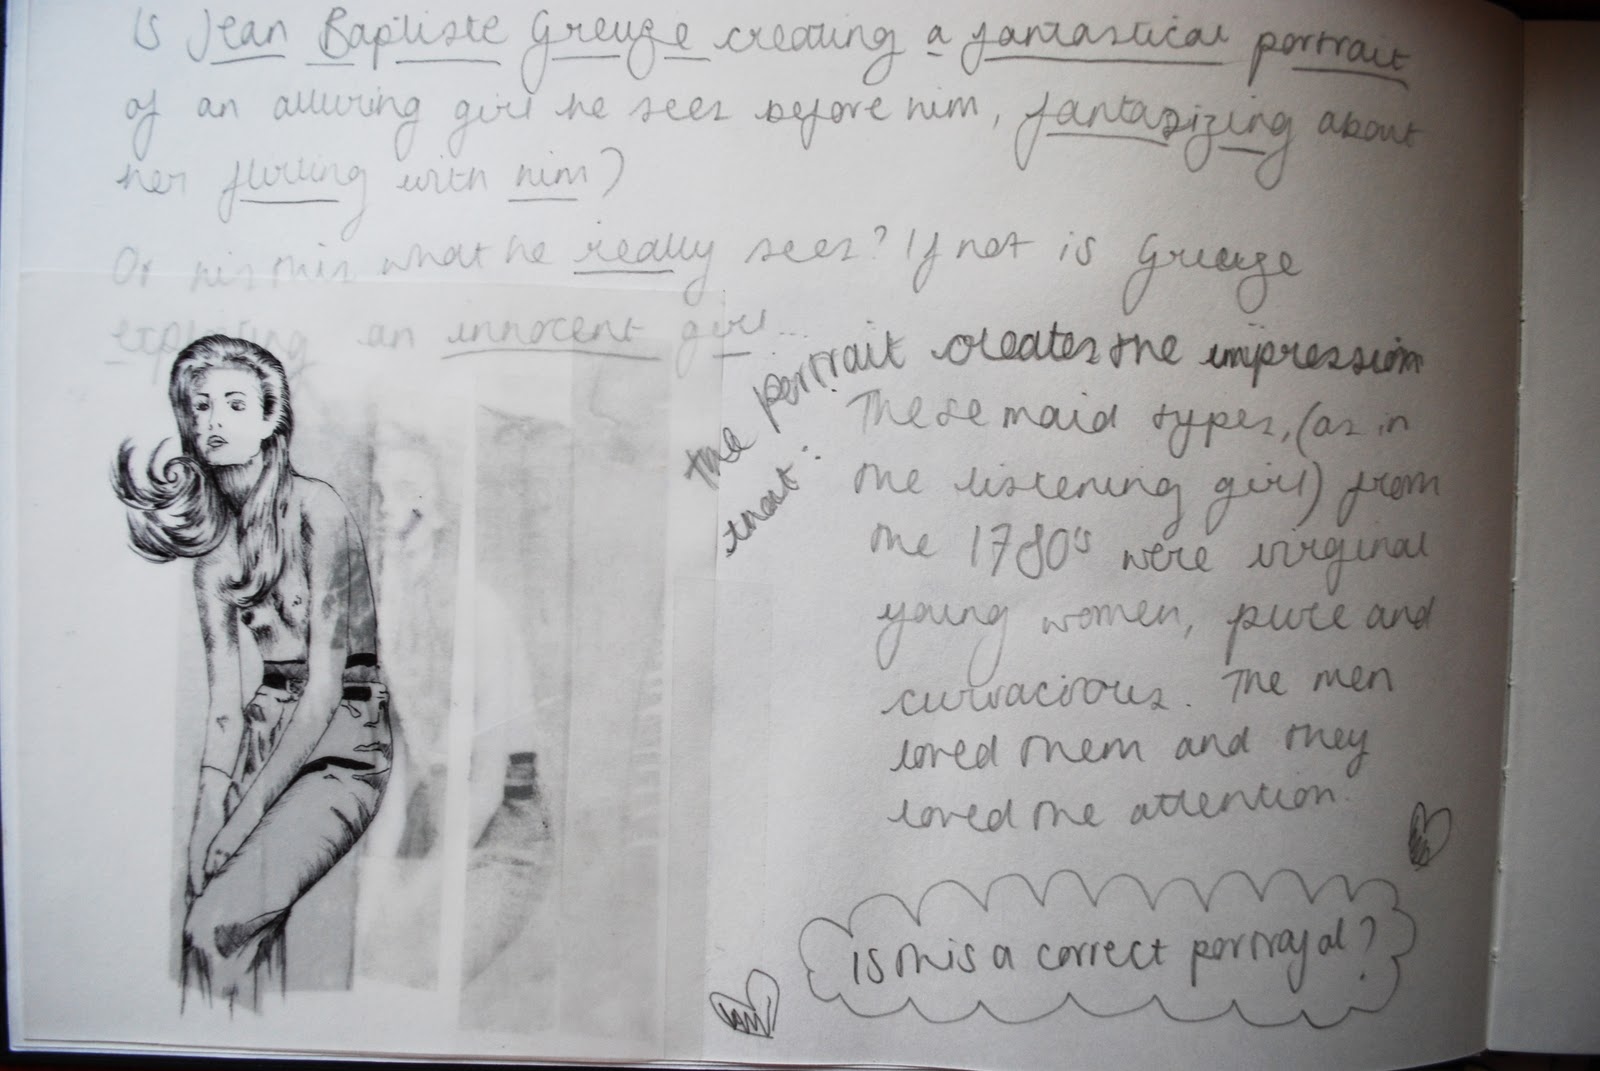 Is Jean Baptiste Greuze creating a fantastical portrait
of an alluring girl he sees before him, fantasizing about
her flirting with him?
Or is this what he really sees? If not is Greuze
exploiting an innocent girl...
The portrait creates the impression
that:
These maid types, (as in
the listening girl) from
the 1780's were virginal
young women, pure and
curvacious. The men
loved them and they
loved the attention.
Is this a correct portrayal?